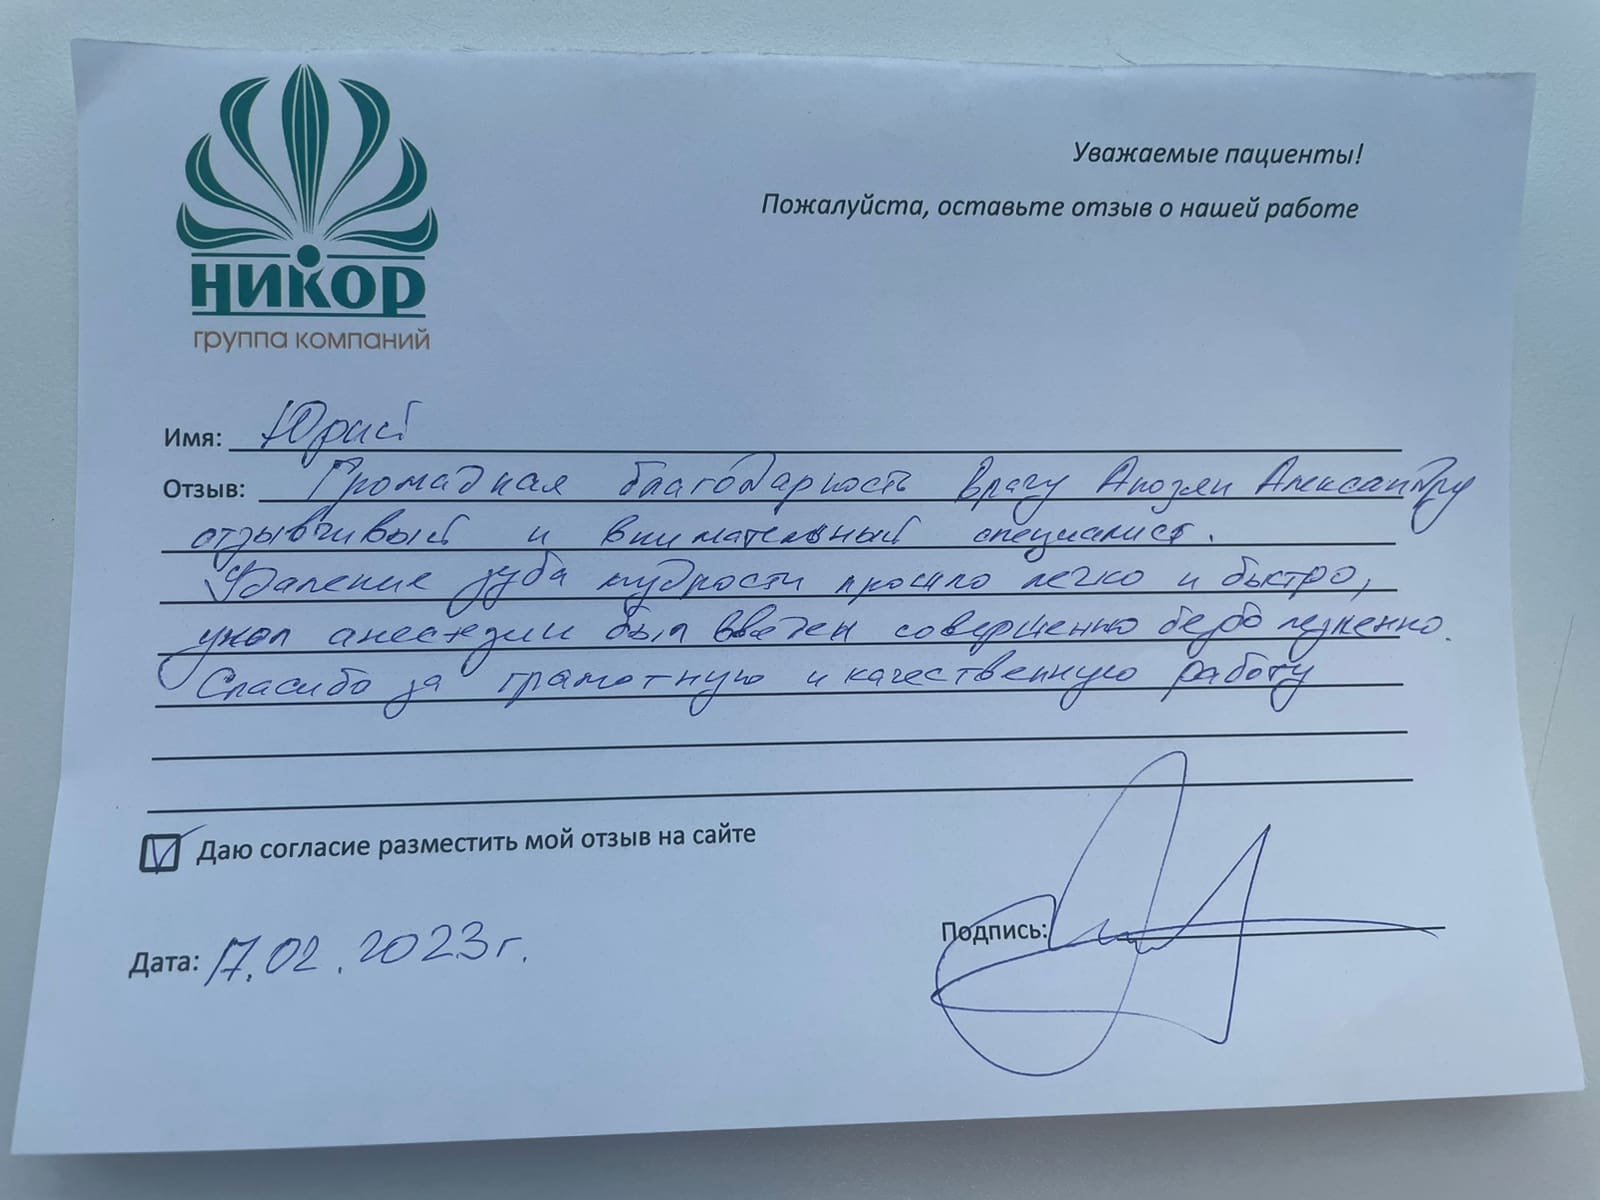 никор
группа компаний
Уважаемые пациенты!
Пожалуйста, оставьте отзыв о нашей работе
Имя: Юрий
Отзыв: Громадная благодарность врачу Апозян Александру
отзывчивый и внимательный специалист.
Удаление зуба мудрости прошло легко и быстро,
укол анестезии был введен совершенно безболезненно.
Спасибо за грамотную и качественную работу
Даю согласие разместить мой отзыв на сайте
Дата: 17.02.2023г.
Подпись: